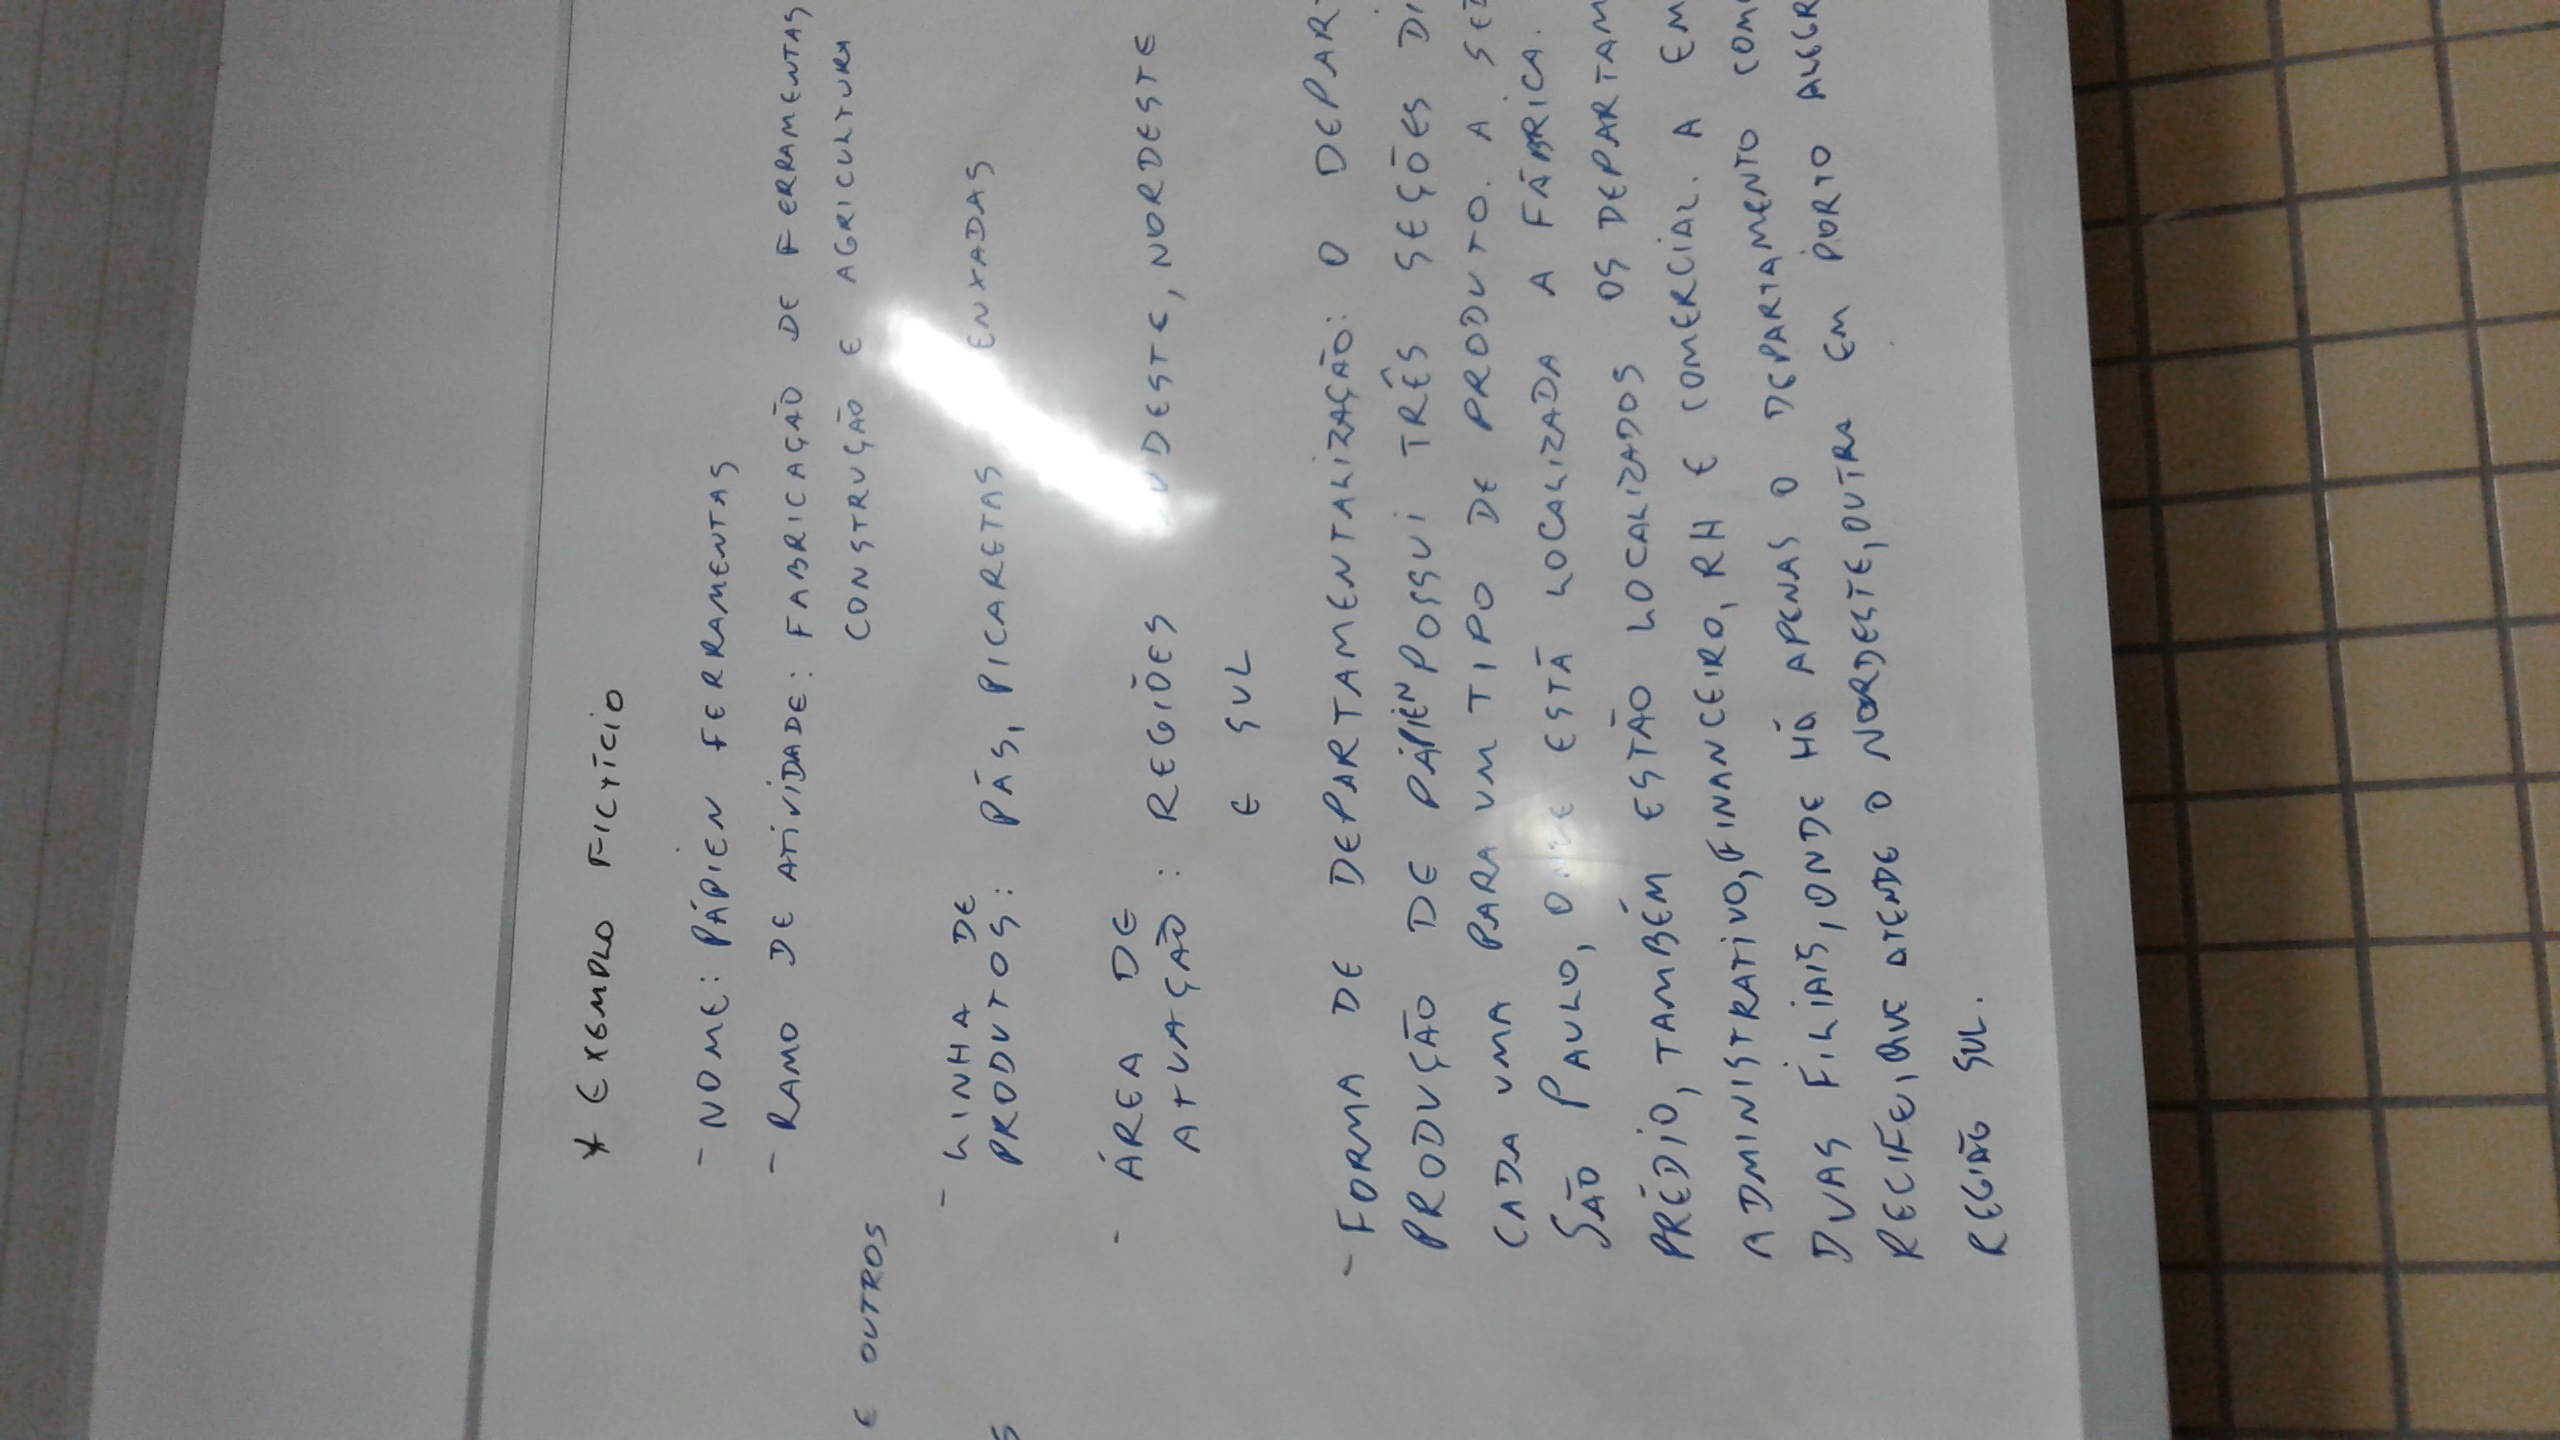 * EXEMPLO FICTÍCIO
- NOME: PÁPIEN FERRAMENTAS
- RAMO DE ATIVIDADE: FABRICAÇÃO DE FERRAMENTAS
CONSTRUÇÃO E AGRICULTURA
E OUTROS
- LINHA DE
PRODUTOS: PÁS, PICARETAS ENXADAS
- ÁREA DE
ATUAÇÃO: REGIÕES SUDESTE, NORDESTE
E SUL
- FORMA DE DEPARTAMENTALIZAÇÃO: O DEPAR
PRODUÇÃO DE PÁPIEN POSSUI TRÊS SEÇÕES DI
CADA UMA PARA UM TIPO DE PRODUTO. A SED
SÃO PAULO, ONDE ESTÁ LOCALIZADA A FÁBRICA.
PRÉDIO, TAMBÉM ESTÃO LOCALIZADOS OS DEPARTAM
ADMINISTRATIVO, FINANCEIRO, RH E COMERCIAL. A EM
DUAS FILIAIS, ONDE HÁ APENAS O DEPARTAMENTO COM
RECIFE, QUE ATENDE O NORDESTE, OUTRA EM PORTO ALEGR
REGIÃO SUL.